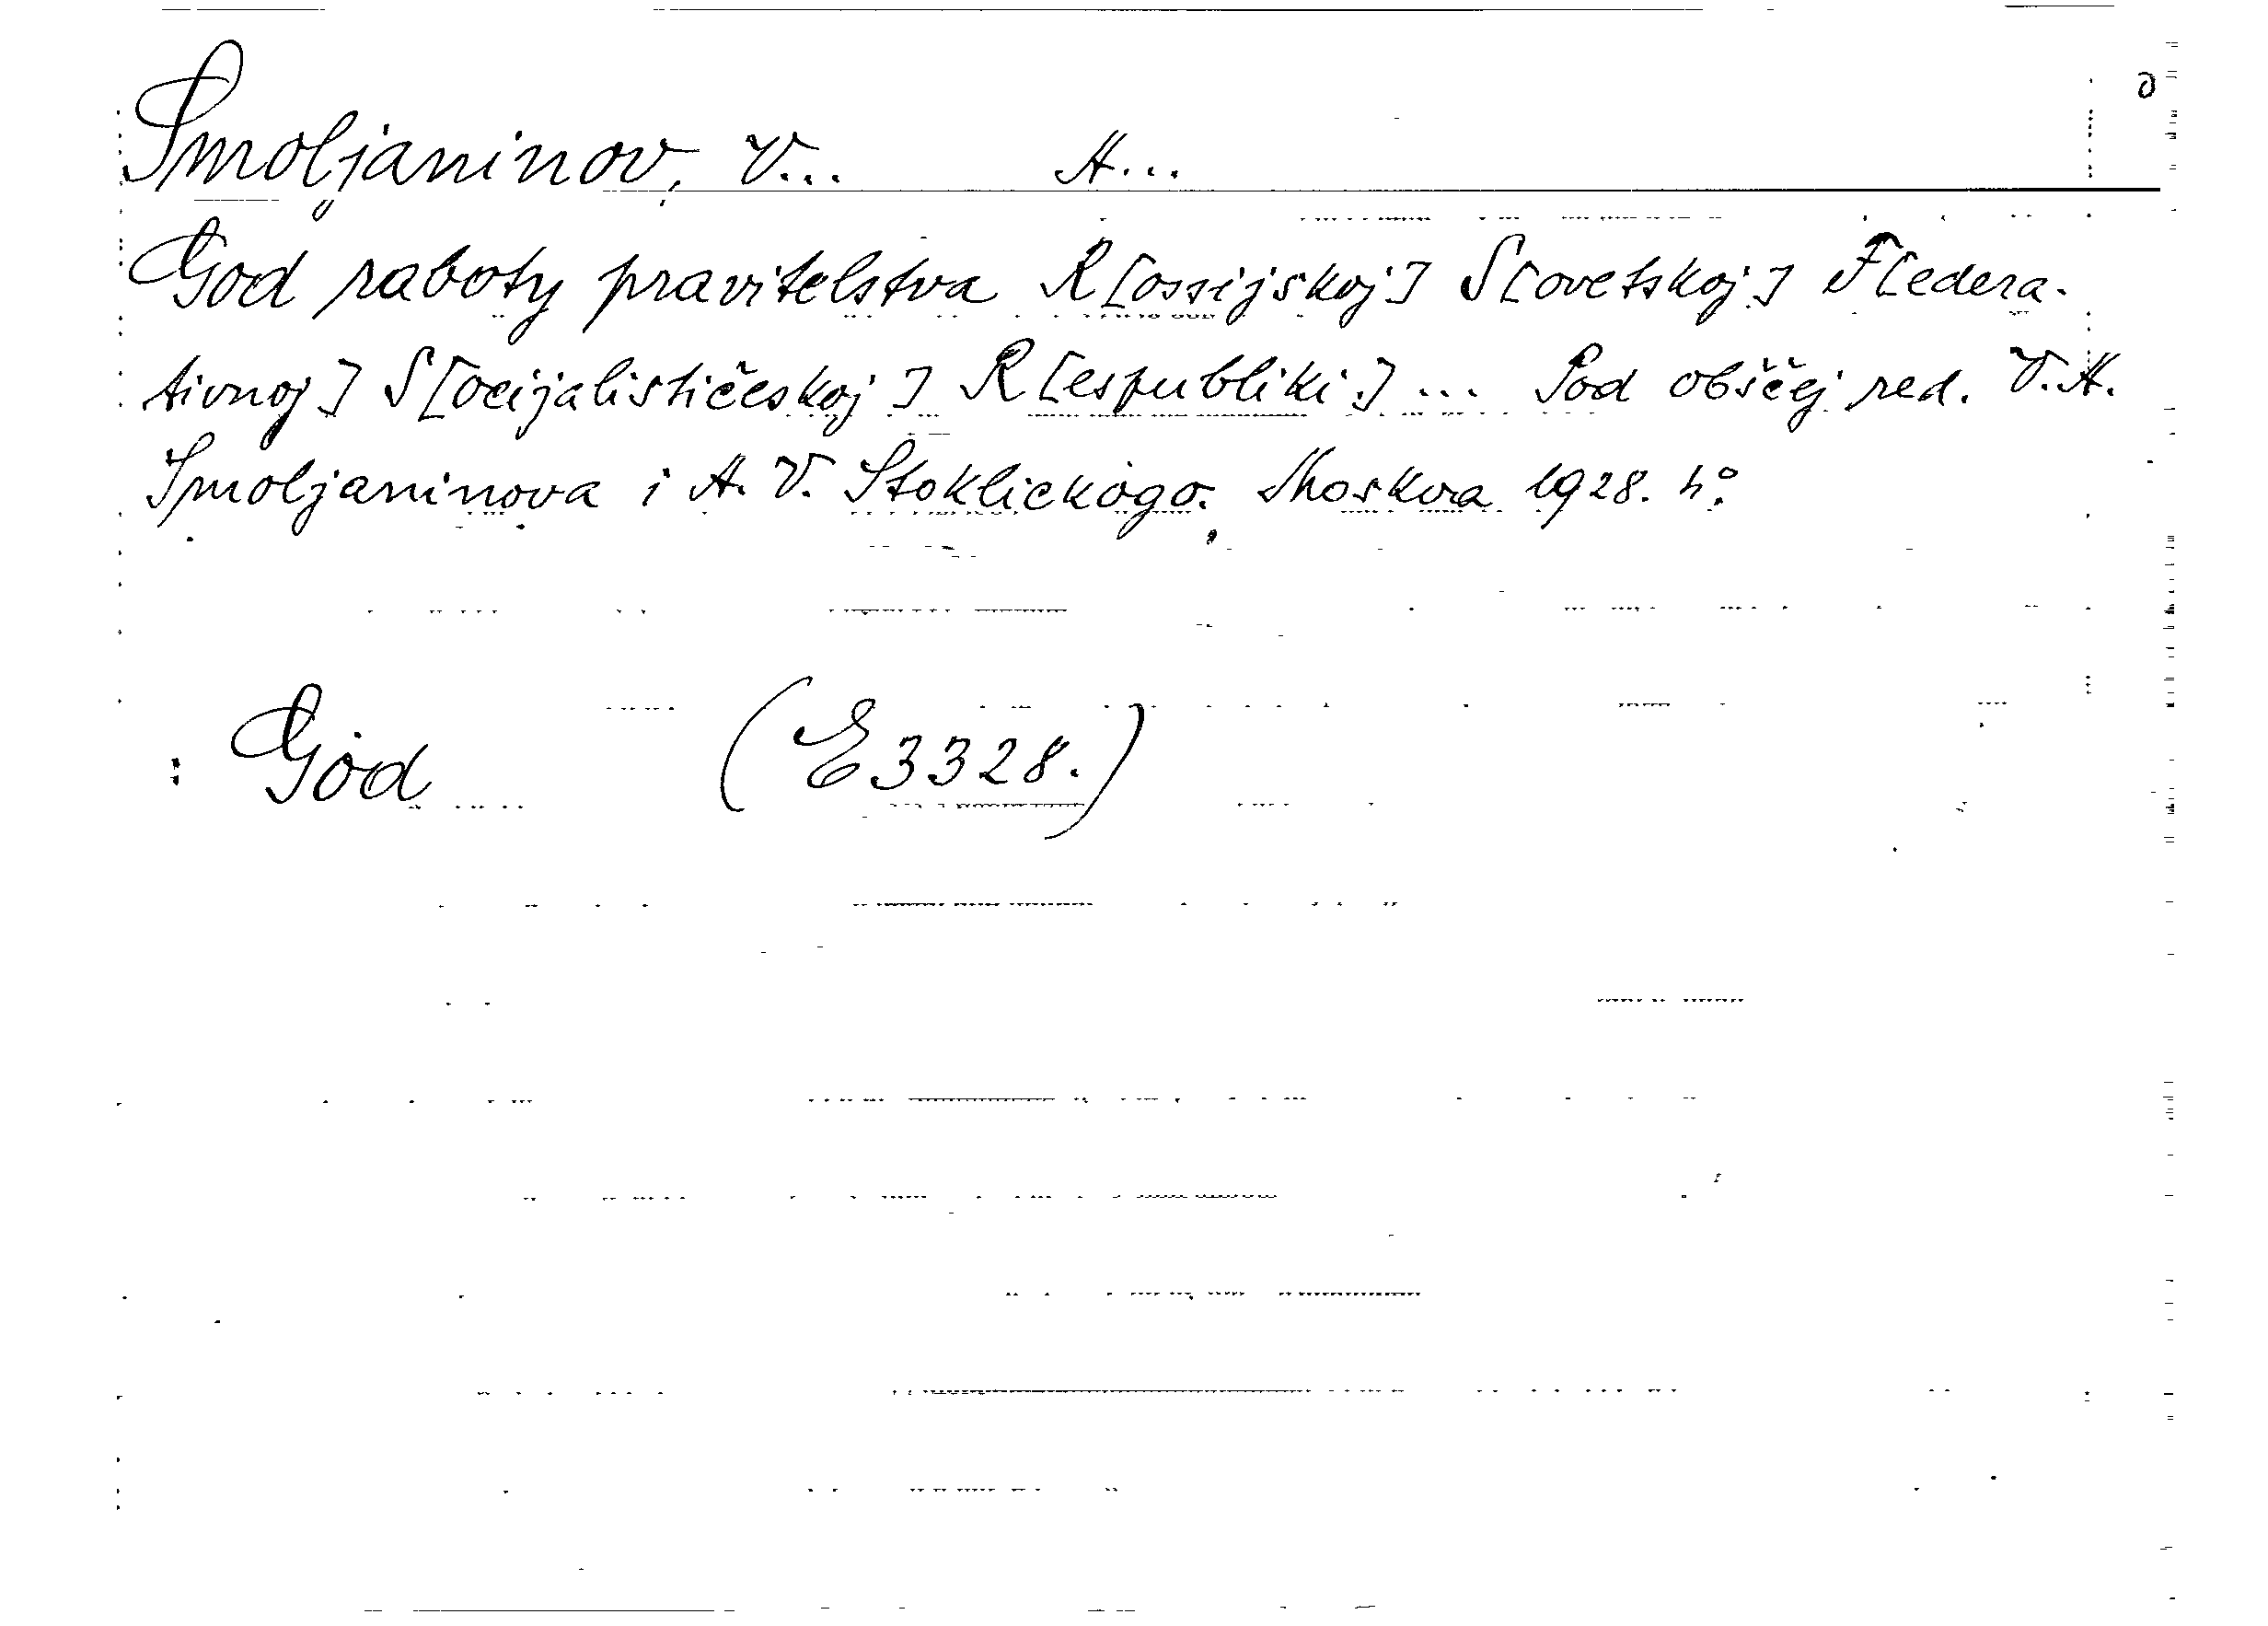 Smoljaninov, V... A...
God raboty pravitelstva R[ossijskoj] S[ovetskoj] F[edera-
tivnoj] S[ocijalističeskoj] R[espubliki] ... Pod obščej red. V. A.
Smoljaninova i A. V. Stoklickogo. Moskva 1928. 4:o
: God (E 3328.)